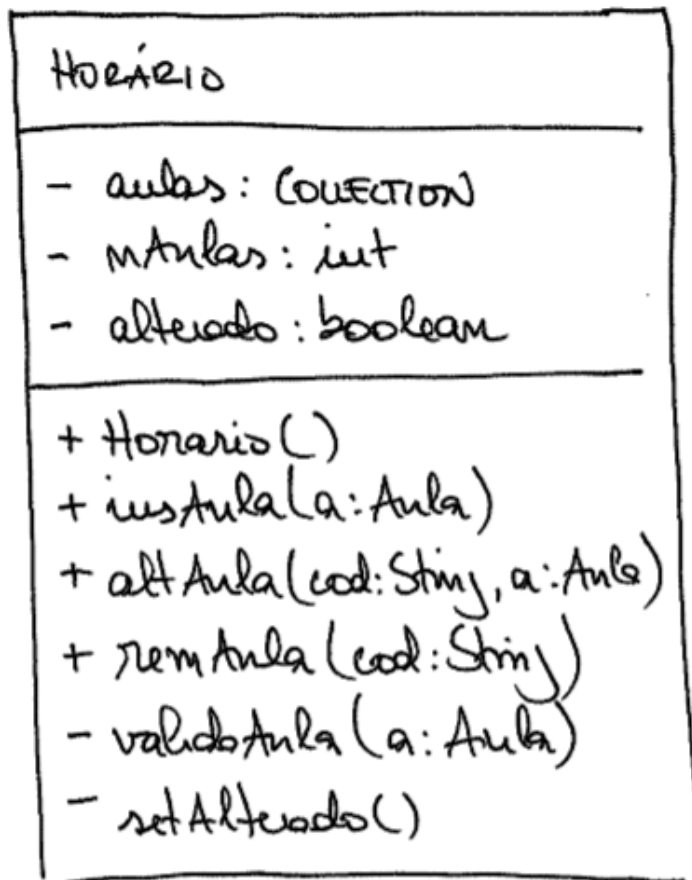 HORÁRIO
- aulas: COLLECTION
- nAulas: int
- alterado: boolean
+ Horario()
+ insAula(a: Aula)
+ altAula(cod: String, a: Aula)
+ remAula(cod: String)
- validaAula(a: Aula)
- setAlterado()